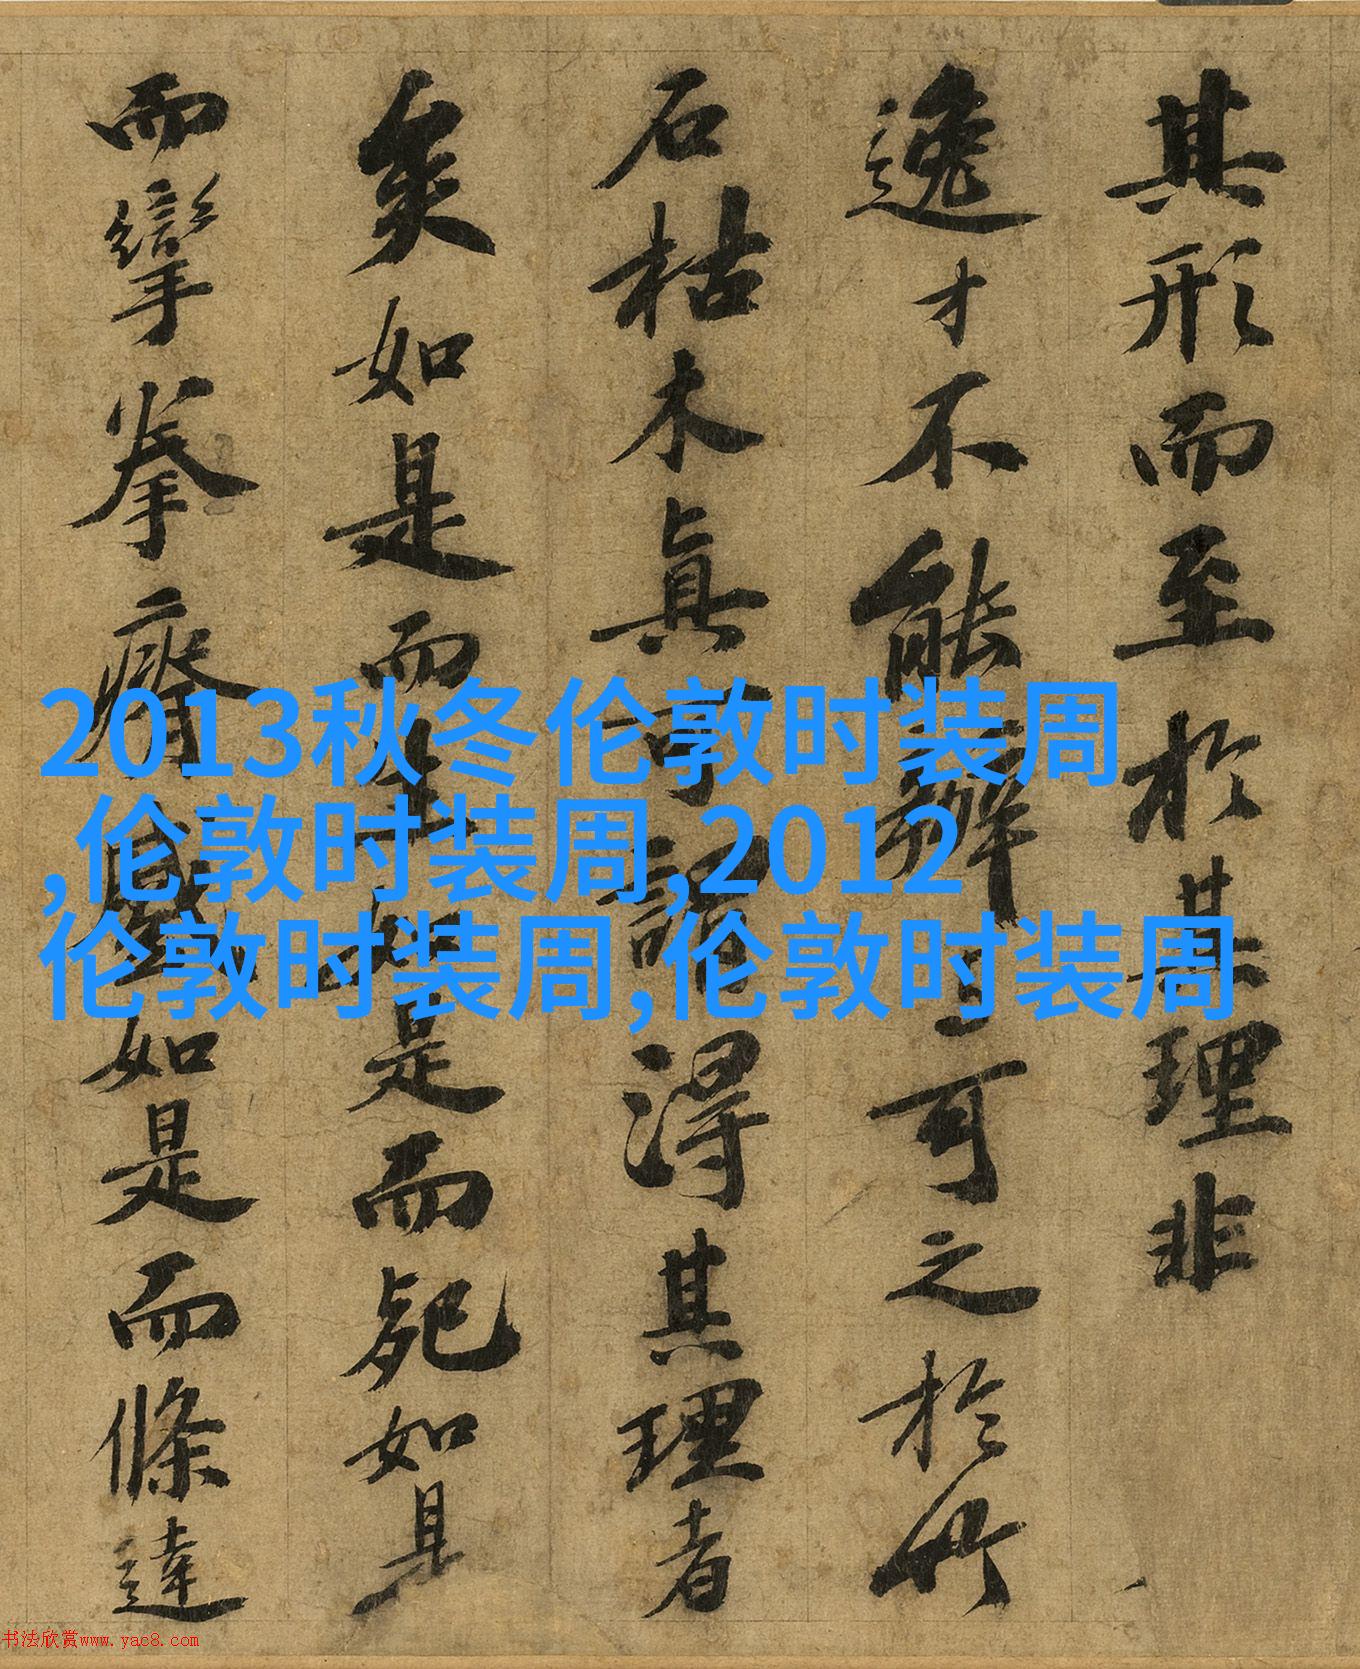 其形而至於其理非
逸才不能可之於竹
石枯木真可謂得其理者
矣如是而生如是而死如是
而攣拳瘠蹙如是而條達
2013秋冬伦敦时装周
,伦敦时装周,2012
伦敦时装周,伦敦时装周
书法欣赏www.yac8.com